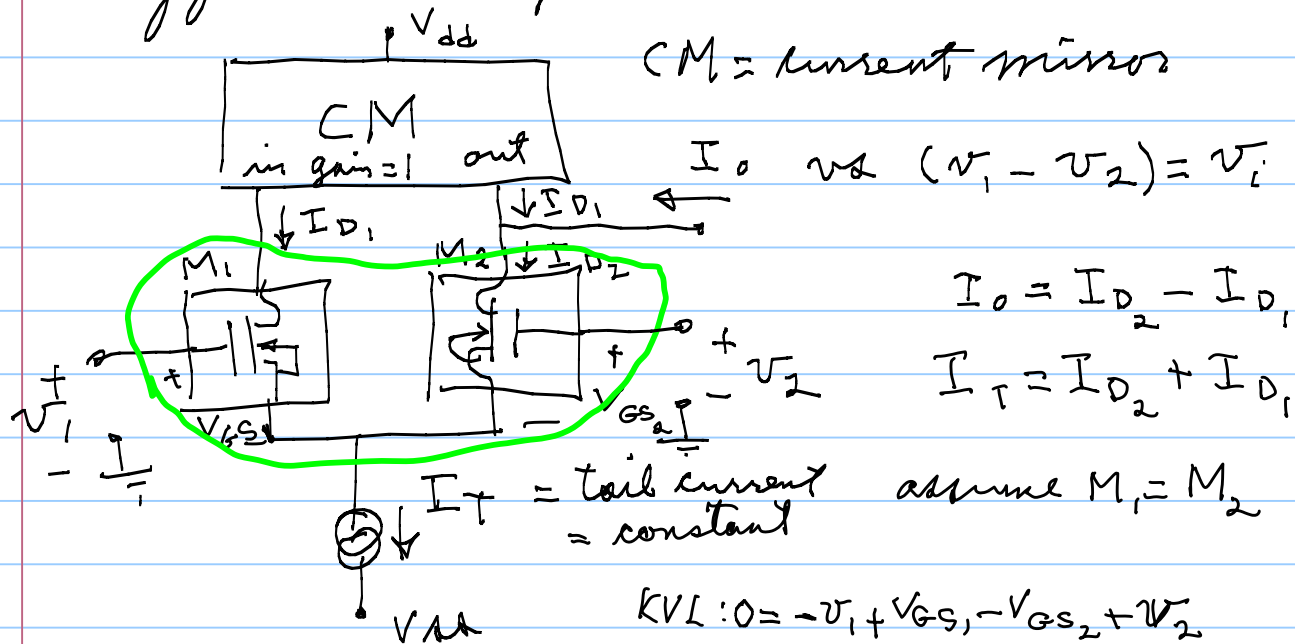 V_dd
CM = current mirror
CM
in gain = 1 out
I_o vs (v_1 - v_2) = v_i
↓ I_D1
↓ I_D1
M_1
M_2 ↓ I_D2
I_o = I_D2 - I_D1
+
+
+
+
v_1
v_2
I_T = I_D2 + I_D1
-
-
V_GS1
V_GS2
-
I_T = tail current
= constant
assume M_1 = M_2
V_ss
KVL: 0 = -v_1 + V_GS1 - V_GS2 + v_2